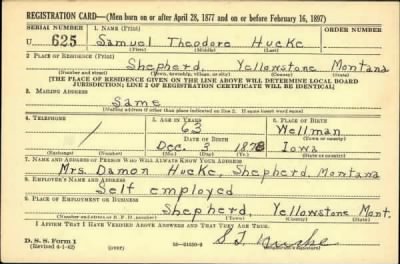 REGISTRATION CARD—(Men born on or after April 28, 1877 and on or before February 16, 1897)
SERIAL NUMBER 1. NAME (Print) ORDER NUMBER
U 625 Samuel Theodore Hucke
(First) (Middle) (Last)
2. PLACE OF RESIDENCE (Print)
Shepherd, Yellowstone Montana
(Number and street) (Town, township, village, or city) (County) (State)
[THE PLACE OF RESIDENCE GIVEN ON THE LINE ABOVE WILL DETERMINE LOCAL BOARD
JURISDICTION; LINE 2 OF REGISTRATION CERTIFICATE WILL BE IDENTICAL]
3. MAILING ADDRESS
Same
[Mailing address if other than place indicated on line 2. If same insert word same]
4. TELEPHONE 5. AGE IN YEARS 6. PLACE OF BIRTH
63 Wellman
DATE OF BIRTH (Town or county)
Dec. 3 1878 Iowa
(Exchange) (Number) (Mo.) (Day) (Yr.) (State or country)
7. NAME AND ADDRESS OF PERSON WHO WILL ALWAYS KNOW YOUR ADDRESS
Mrs. Damon Hucke, Shepherd, Montana
8. EMPLOYER'S NAME AND ADDRESS
Self employed
9. PLACE OF EMPLOYMENT OR BUSINESS
Shepherd, Yellowstone Mont.
(Number and street or R. F. D. number) (Town) (County) (State)
I AFFIRM THAT I HAVE VERIFIED ABOVE ANSWERS AND THAT THEY ARE TRUE.
D. S. S. Form 1
(Revised 4-1-42) (over)
S. T. Hucke